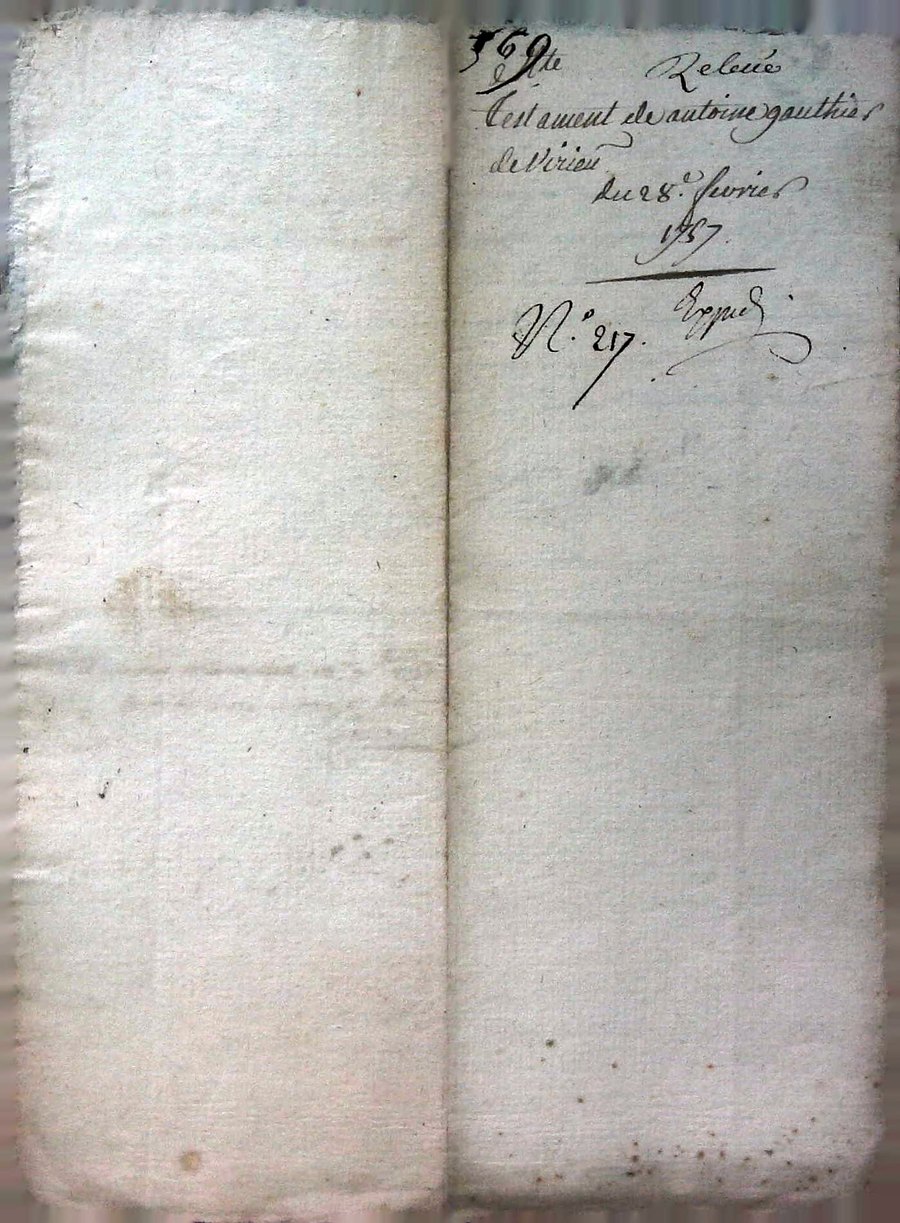 569 Releué
testament de antoine gauthier
de Virieu
du 28.e fevrier
1757.
N.o 217. Expedié